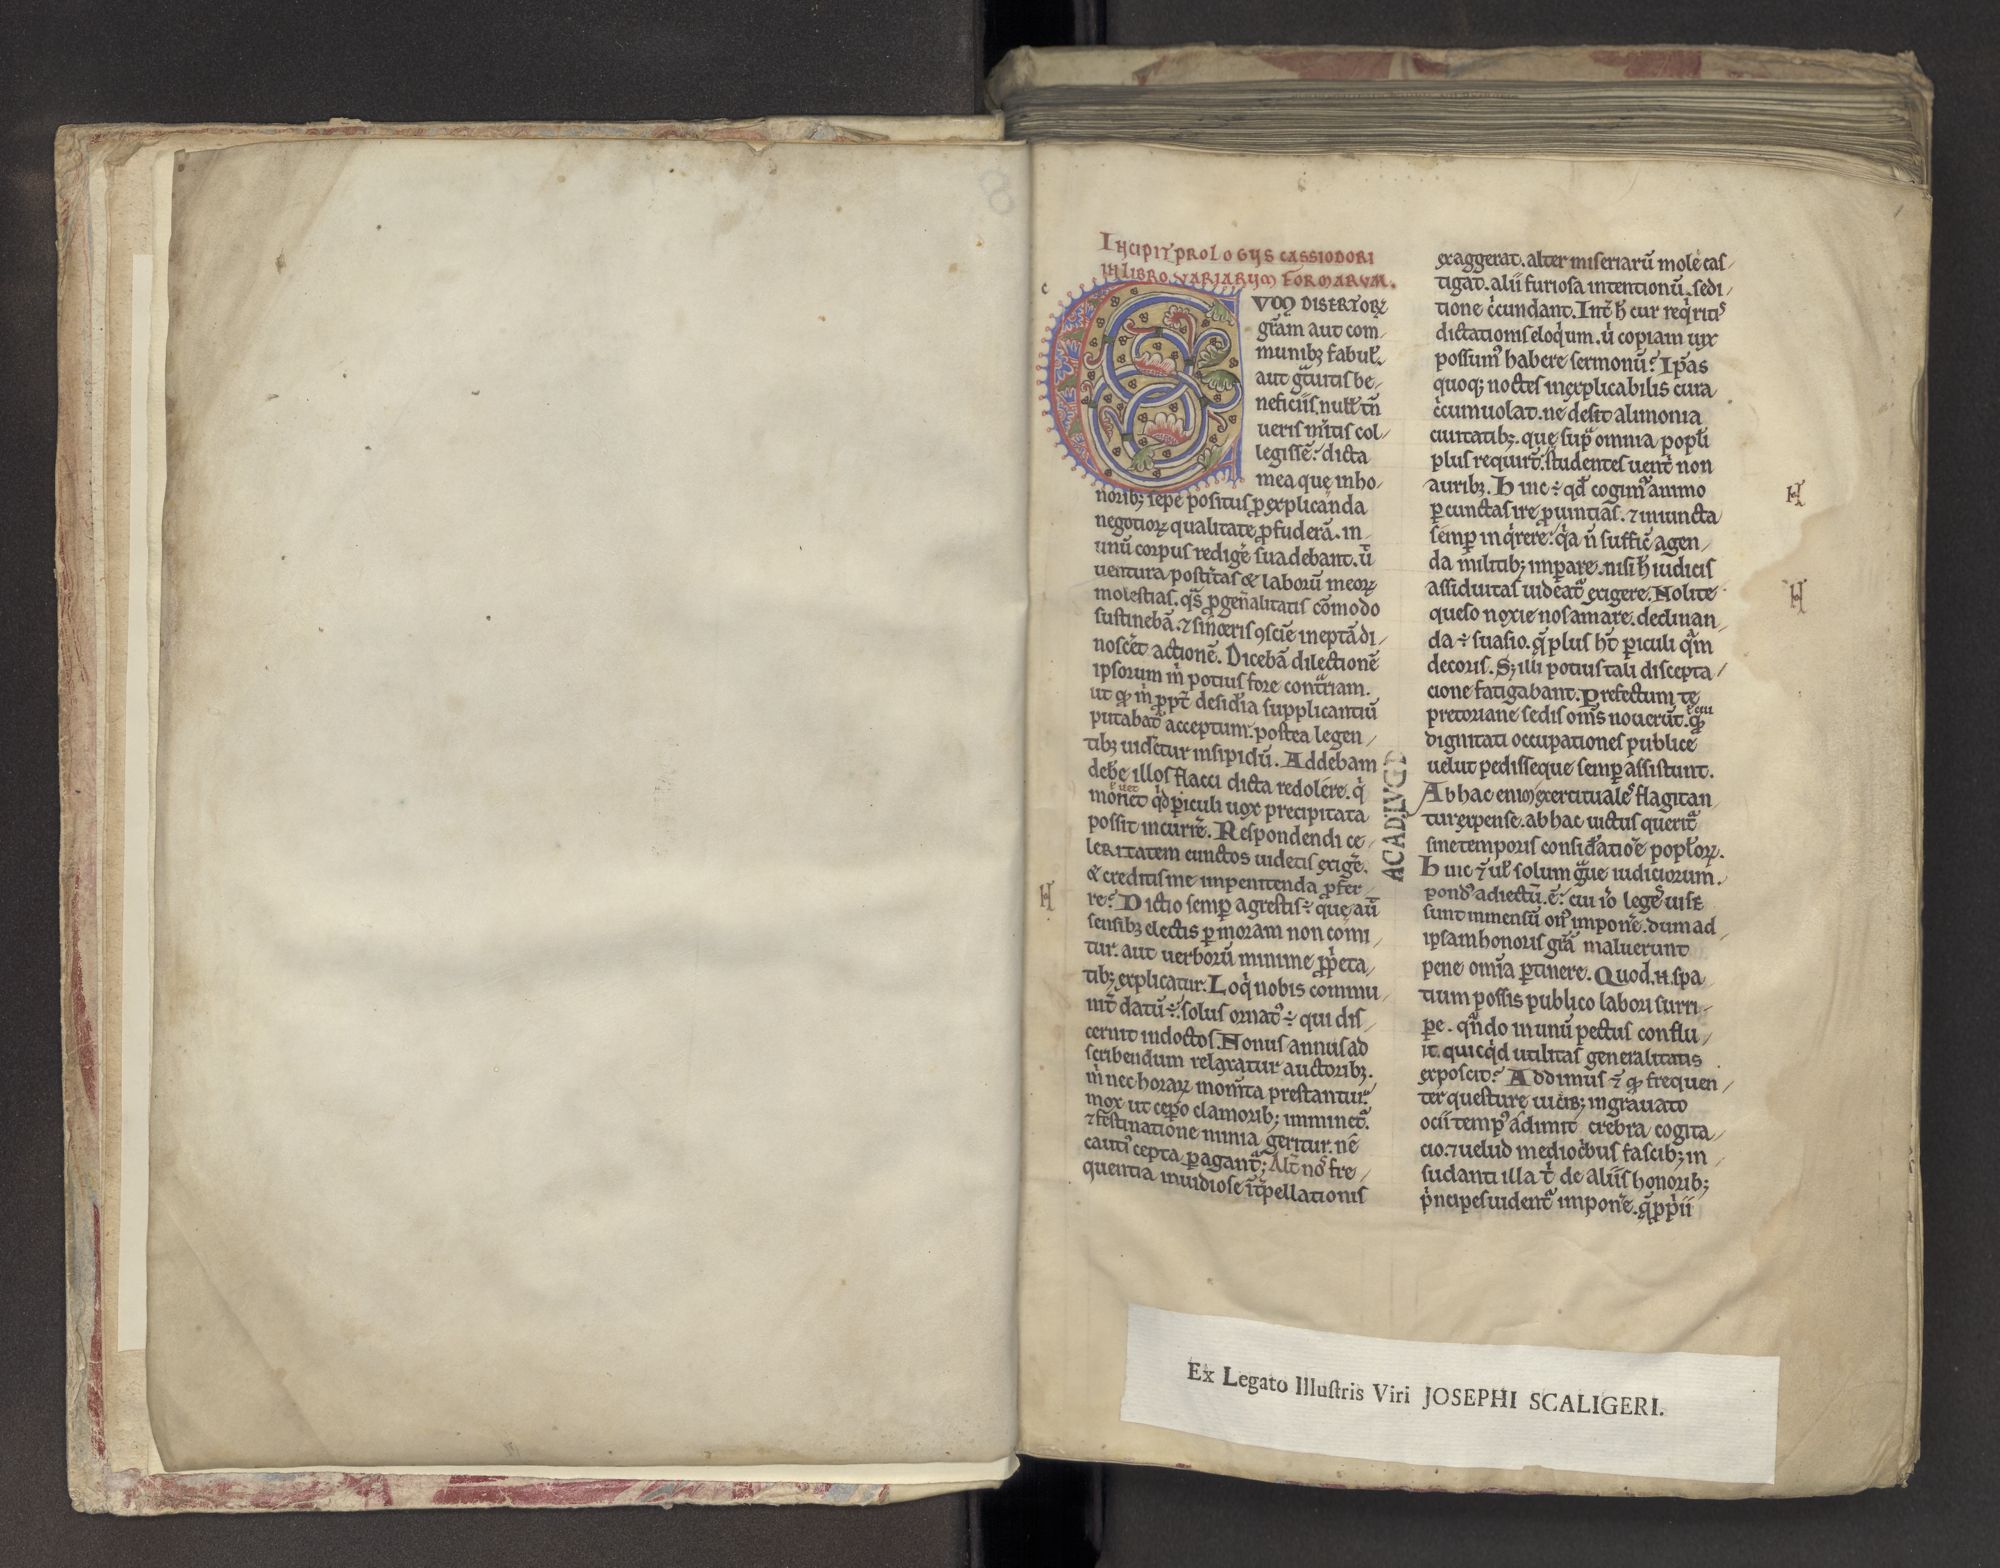 INCIPIT PROLOGUS CASSIODORI
IN LIBRO VARIARUM FORMARUM.
CUM DISERTORꝜ
gr̄am aut com-
munibꝫ fabul'.
aut gͣtuitis be-
neficiis. null' tn̄
ueris m̄itis col-
legissē? dicta
mea que in ho-
noribꝫ sepe positus ꝓ explicanda
negotioꝝ qualitate ꝓfuderā. in
unū corpus redigere suadebant. ut
uentura post̄itas & laborū meoꝝ
molestias. qs̄ ꝓ gen̄alitatis cōmodo
sustinebā. ⁊ sinceris ꝯscīe ineptā di-
noscēt actionē. Dicebā dilectionē
ipsorum m̍ potius fore contͣriam.
ut qđ m̍ ꝓpt̄ desidia supplicantiū
putabat̄ acceptum. postea legen-
tibꝫ uidetur insipidū. Addebam
debe illos flacci dicta redolere. q̍
monet qđ ꝑiculi uox precipitata
possit incurrē. Respondendi ce-
leritatem cunctos uidetis exigē.
& creditis me inpenitenda ꝓfer-
re? Dictio semꝑ agrestis ÷ que aut̄
sensibꝫ electis ꝑ moram non comi-
tur. aut uerborū minime ꝓp̍eta-
tibꝫ explicatur. Loq̍ nobis commu-
nit̄ datū ÷. solus ornat᾿ ÷ qui dis-
cernit indoctos. Nonus annus ad
scribendum relaxatur auctoribꝫ.
m̍ nec horaꝝ mom̄ta prestantur.
mox ut cepo clamoribꝫ imminet̄.
⁊ festinatione nimia geritur. nē
caut᾿ cepta ꝑagant̄; Alt̄ nos fre-
quentia inuidiose int̄pellationis
exaggerat. alter miseriarū mole cas-
tigat. alii furiosa intentionū. sedi-
tione c̍cundant. Int̄ ħ cur req̍ritis
dictationis eloq̍um. u̍ copiam uix
possum᾿ habere sermonū? Ip̄as
quoqꝫ noctes inexplicabilis cura
c̍cumuolat. ne desit alimonia
ciuitatibꝫ. quę supͣ omnia popl̍i
plus requirt̄. studentes uent̍ non
auribꝫ. Hinc ÷ qđ cogimͣ animo
ꝑ cunctas ire ꝓuintias. ⁊ iniuncta
semꝑ inq̍rere. q̍a n̄ suffic̄ agen-
da militibꝫ imꝑare. nisi ħ iudicis
assiduitas uideatͣ exigere. Nolite
queso noxie nos amare. declinan-
da ÷ suasio. q̄ plus ht̄ ꝑiculi qͣm
decoris. Sꝫ illi potius tali discepta-
cione fatigabant. Prefectum te
pretoriane sedis om̄s nouerūt. cui
dignitati occupationes publice
uelut pedisseque semꝑ assistunt.
Ab hac enim exercituales flagitan-
tur expense. ab hac uictus querit̄
sine temporis considͣatiōe popl̍oꝝ.
Hinc ⁊ ul̍ solum gͣue iudiciorum.
pond᾿ adiectū. ē? cui i̍o leges uisę
sunt inmensū on᾿ imponē. dum ad
ipsam honoris grā maluerunt
pene om̍ia ꝑtinere. Quod. n̄. spa-
tium possis publico labori surri-
ꝑe. qͣndo in unū pectus conflu-
it. quicqđ utilitas generalitatis
exposcit? Addimus ⁊ qđ frequen-
ter questure uicibꝫ ingrauato
ocii temp᾿ adimit crebra cogita-
cio. ⁊ uelud mediocͥbus fascibꝫ in-
sudanti illa t̍ de aliis honoribꝫ
pͥncipes uident̄ imponē. q̄ ꝓpͥii
ACAD. LVGD
Ex Legato Illuſtris Viri JOSEPHI SCALIGERI.